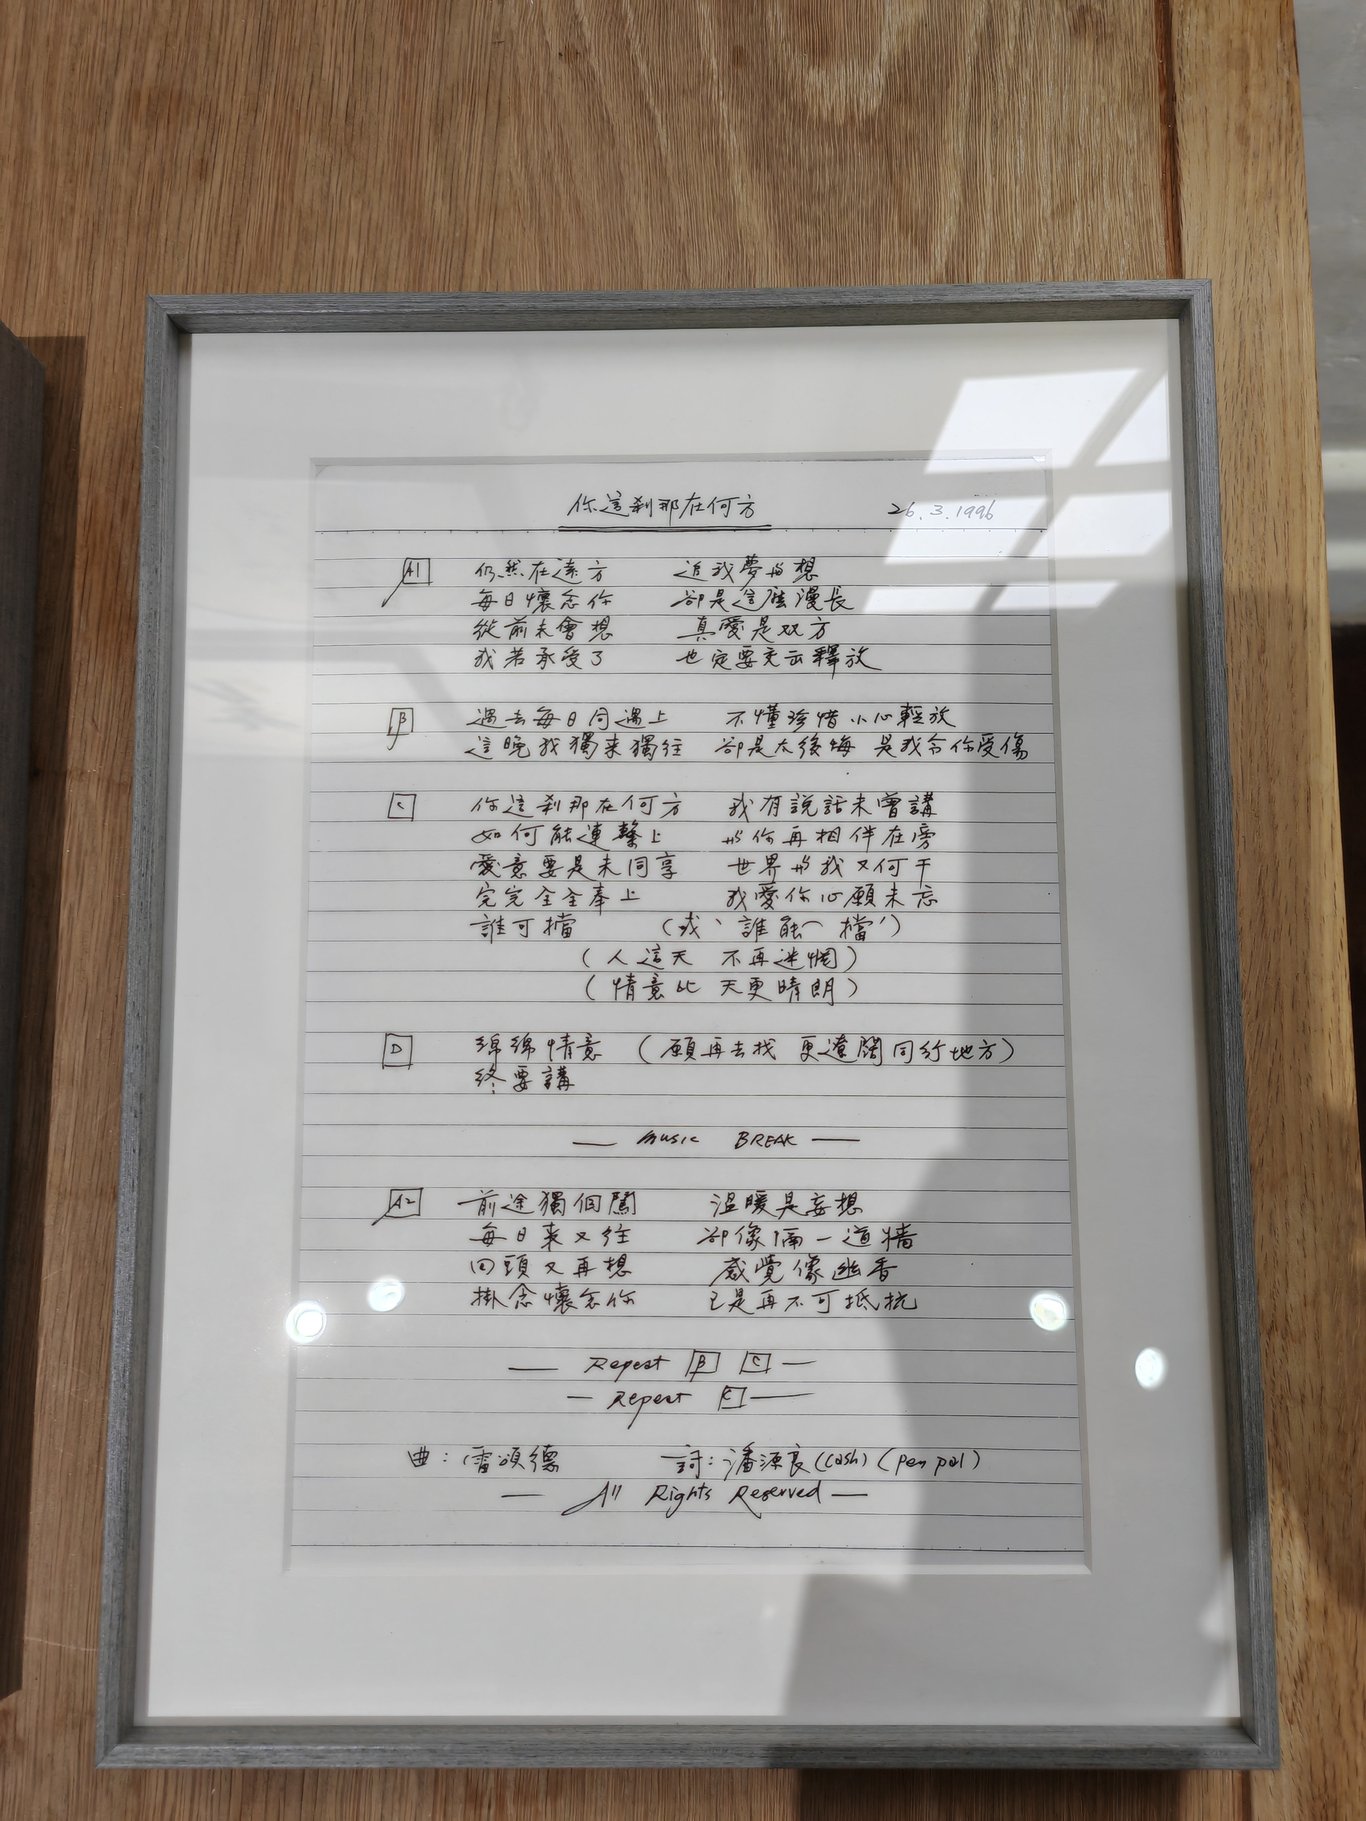 你這刹那在何方 26.3.1996
A1 仍然在遠方 追我夢與想
每日懷念你 卻是這麼漫長
從前未會想 真愛是双方
我若承受了 也定要充云釋放
B 過去每日同遇上 不懂珍惜小心輕放
這晚我獨來獨往 卻是太後悔 是我令你受傷
C 你這刹那在何方 我有說話未曾講
如何能連繫上 與你再相伴在旁
愛意要是未同享 世界與我又何干
完完全全奉上 我愛你心願未忘
誰可擋 (或'誰能擋')
(人這天 不再迷惘)
(情意比 天更晴朗)
D 綿綿情意 (願再去找 更遼闊同行地方)
終要講
— MUSIC BREAK —
A2 前途獨個闖 溫暖是妄想
每日來又往 卻像隔一道牆
回頭又再想 感覺像幽香
掛念懷念你 已是再不可抵抗
— Repeat B C —
— Repeat C —
曲:雷頌德 詞:潘源良 (Cash) (pen pal)
— All Rights Reserved —